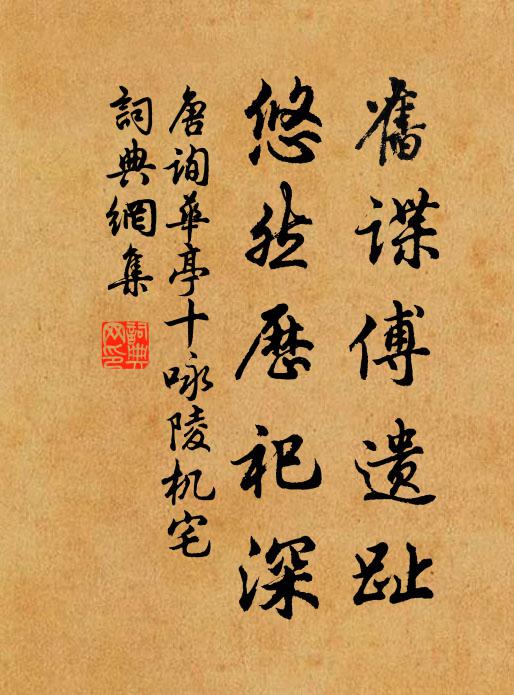 舊諜傅遺趾
悠然歷祀深
唐詢華亭十咏陵机宅
詞典網集
詞典网印